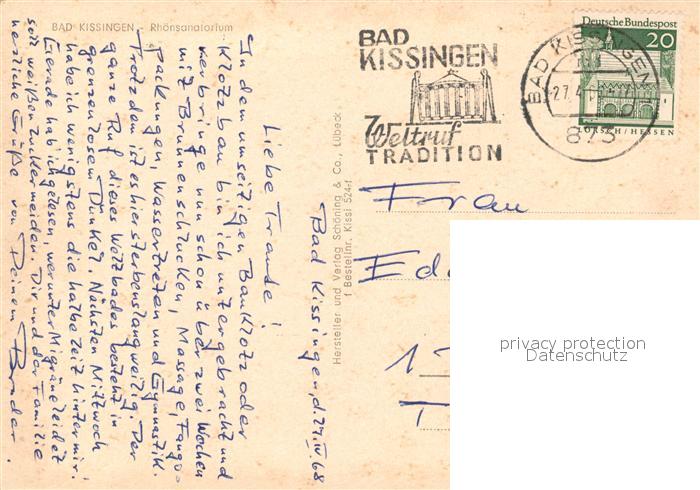 BAD KISSINGEN - Rhönsanatorium
Bad Kissingen, d. 24.IV.68
Liebe Traude!
In dem umseitigen Bauklotz oder
Klotzbau bin ich untergebracht und
verbringe nun schon über zwei Wochen
mit Brunnenschlucken, Massage, Fango-
packungen, Wassertreten und Gymnastik.
Trotzdem ist es hier sterbenslangweilig. Der
ganze Ruf dieses Weltbades besteht in
grenzenlosem Dünkel. Nächsten Mittwoch
habe ich wenigstens die halbe Zeit hinter mir.
Gerade hab' ich gelesen, wer unter Migräne leidet
soll weißen Zucker meiden. Dir und der Familie
herzliche Grüße von Deinem Bruder.
Hersteller und Verlag Schöning & Co., Lübeck
Bestellnr. Kissi 524-f
BAD
KISSINGEN
Weltruf
TRADITION
BAD KISSINGEN
27.4.
873
Deutsche Bundespost
20
LORSCH/HESSEN
Frau
privacy protection
Datenschutz